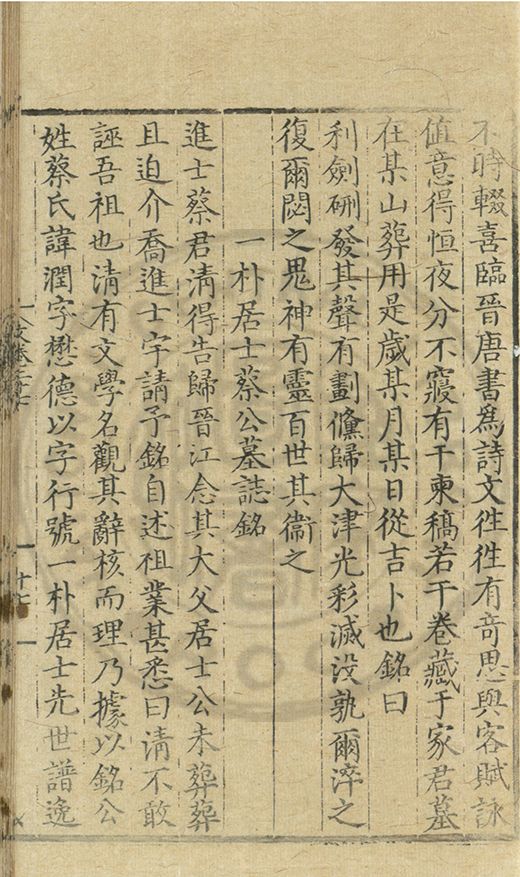 不時輟喜臨晉唐書為詩文徃徃有奇思與客賦詠
值意得恒夜分不寢有于柬稿若干卷藏于家君墓
在某山葬用是歲某月某日從吉卜也銘曰
利劍硎發其聲有劃儵歸大津光彩滅没孰爾淬之
復爾閟之鬼神有靈百世其衞之
一朴居士蔡公墓誌銘
進士蔡君清得告歸晉江念其大父居士公未葬葬
且迫介喬進士宇請予銘自述祖業甚悉曰清不敢
誣吾祖也清有文學名觀其辭核而理乃據以銘公
姓蔡氏諱潤字懋德以字行號一朴居士先世譜逸
文卷二十七
十七